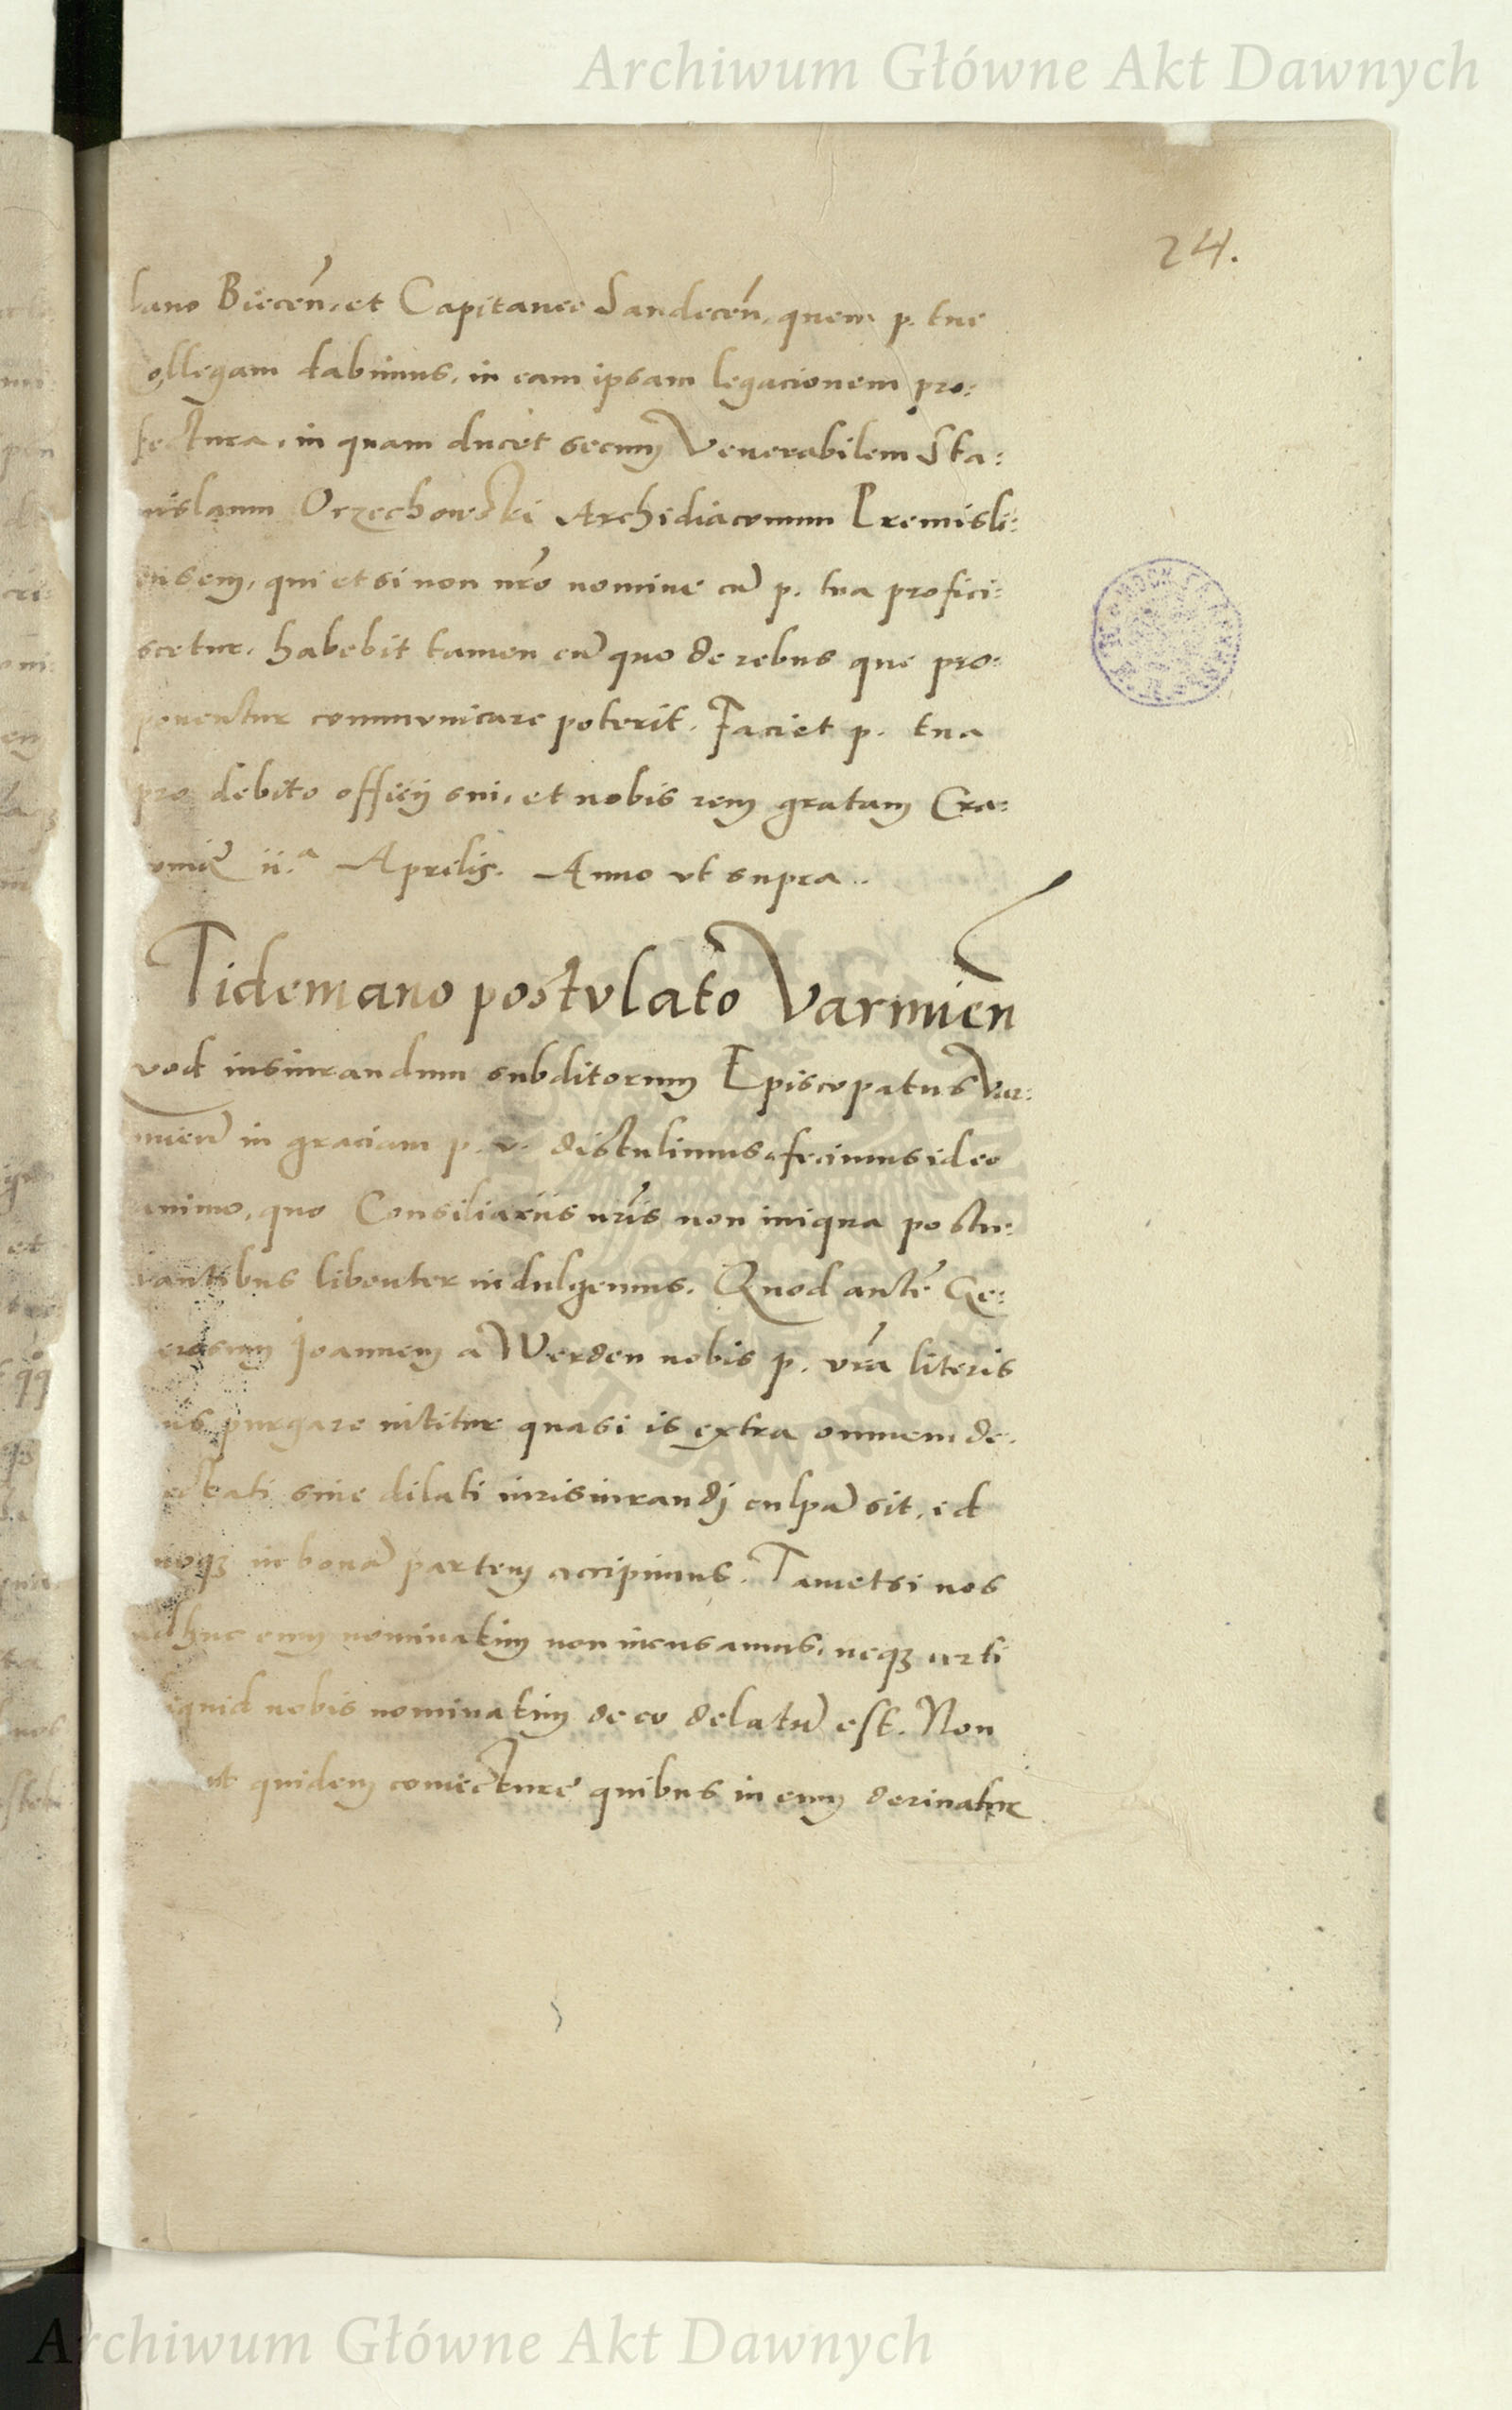 Archiwum Główne Akt Dawnych
24.
lano Biecen̄, et Capitaneo Sandecen̄, quem p. tue
ollegam dabimus, in eam ipsam legacionem pro:
fectura, in quam ducet secum Venerabilem Sta:
nislaum Orzechowski Archidiaconum Premisli:
ensem, qui et si non nr̄o nomine cū p. tua profici:
scetur, habebit tamen cū quo de rebus que pro:
ponentur communicare poterit. Faciet p. tua
pro debito officij sui, et nobis rem gratam Cra:
ouię ii.ª Aprilis. Anno vt supra..
Tidemano postvlato Varmien̄
vod iusiurandum subditorum Episcopatus Var:
mien̄ in graciam p. v. distulimus, fecimus id eo
animo, quo Consiliariis nr̄is non iniqua postu:
lantibus libenter indulgemus. Quod autē Ge:
erosum Joannem a Werden nobis p. vr̄a literis
uis purgare nititur quasi is extra omnem de:
ectati siue dilati iurisiurandj culpā sit, id
uoqꝫ in bonā partem accipimus. Tametsi nos
adhuc eum nominatim non incusamus, neqꝫ certi
iquid nobis nominatim de eo delatū est. Non
ut quidem coniecturę quibus in eum deriuatur
Archiwum Główne Akt Dawnych